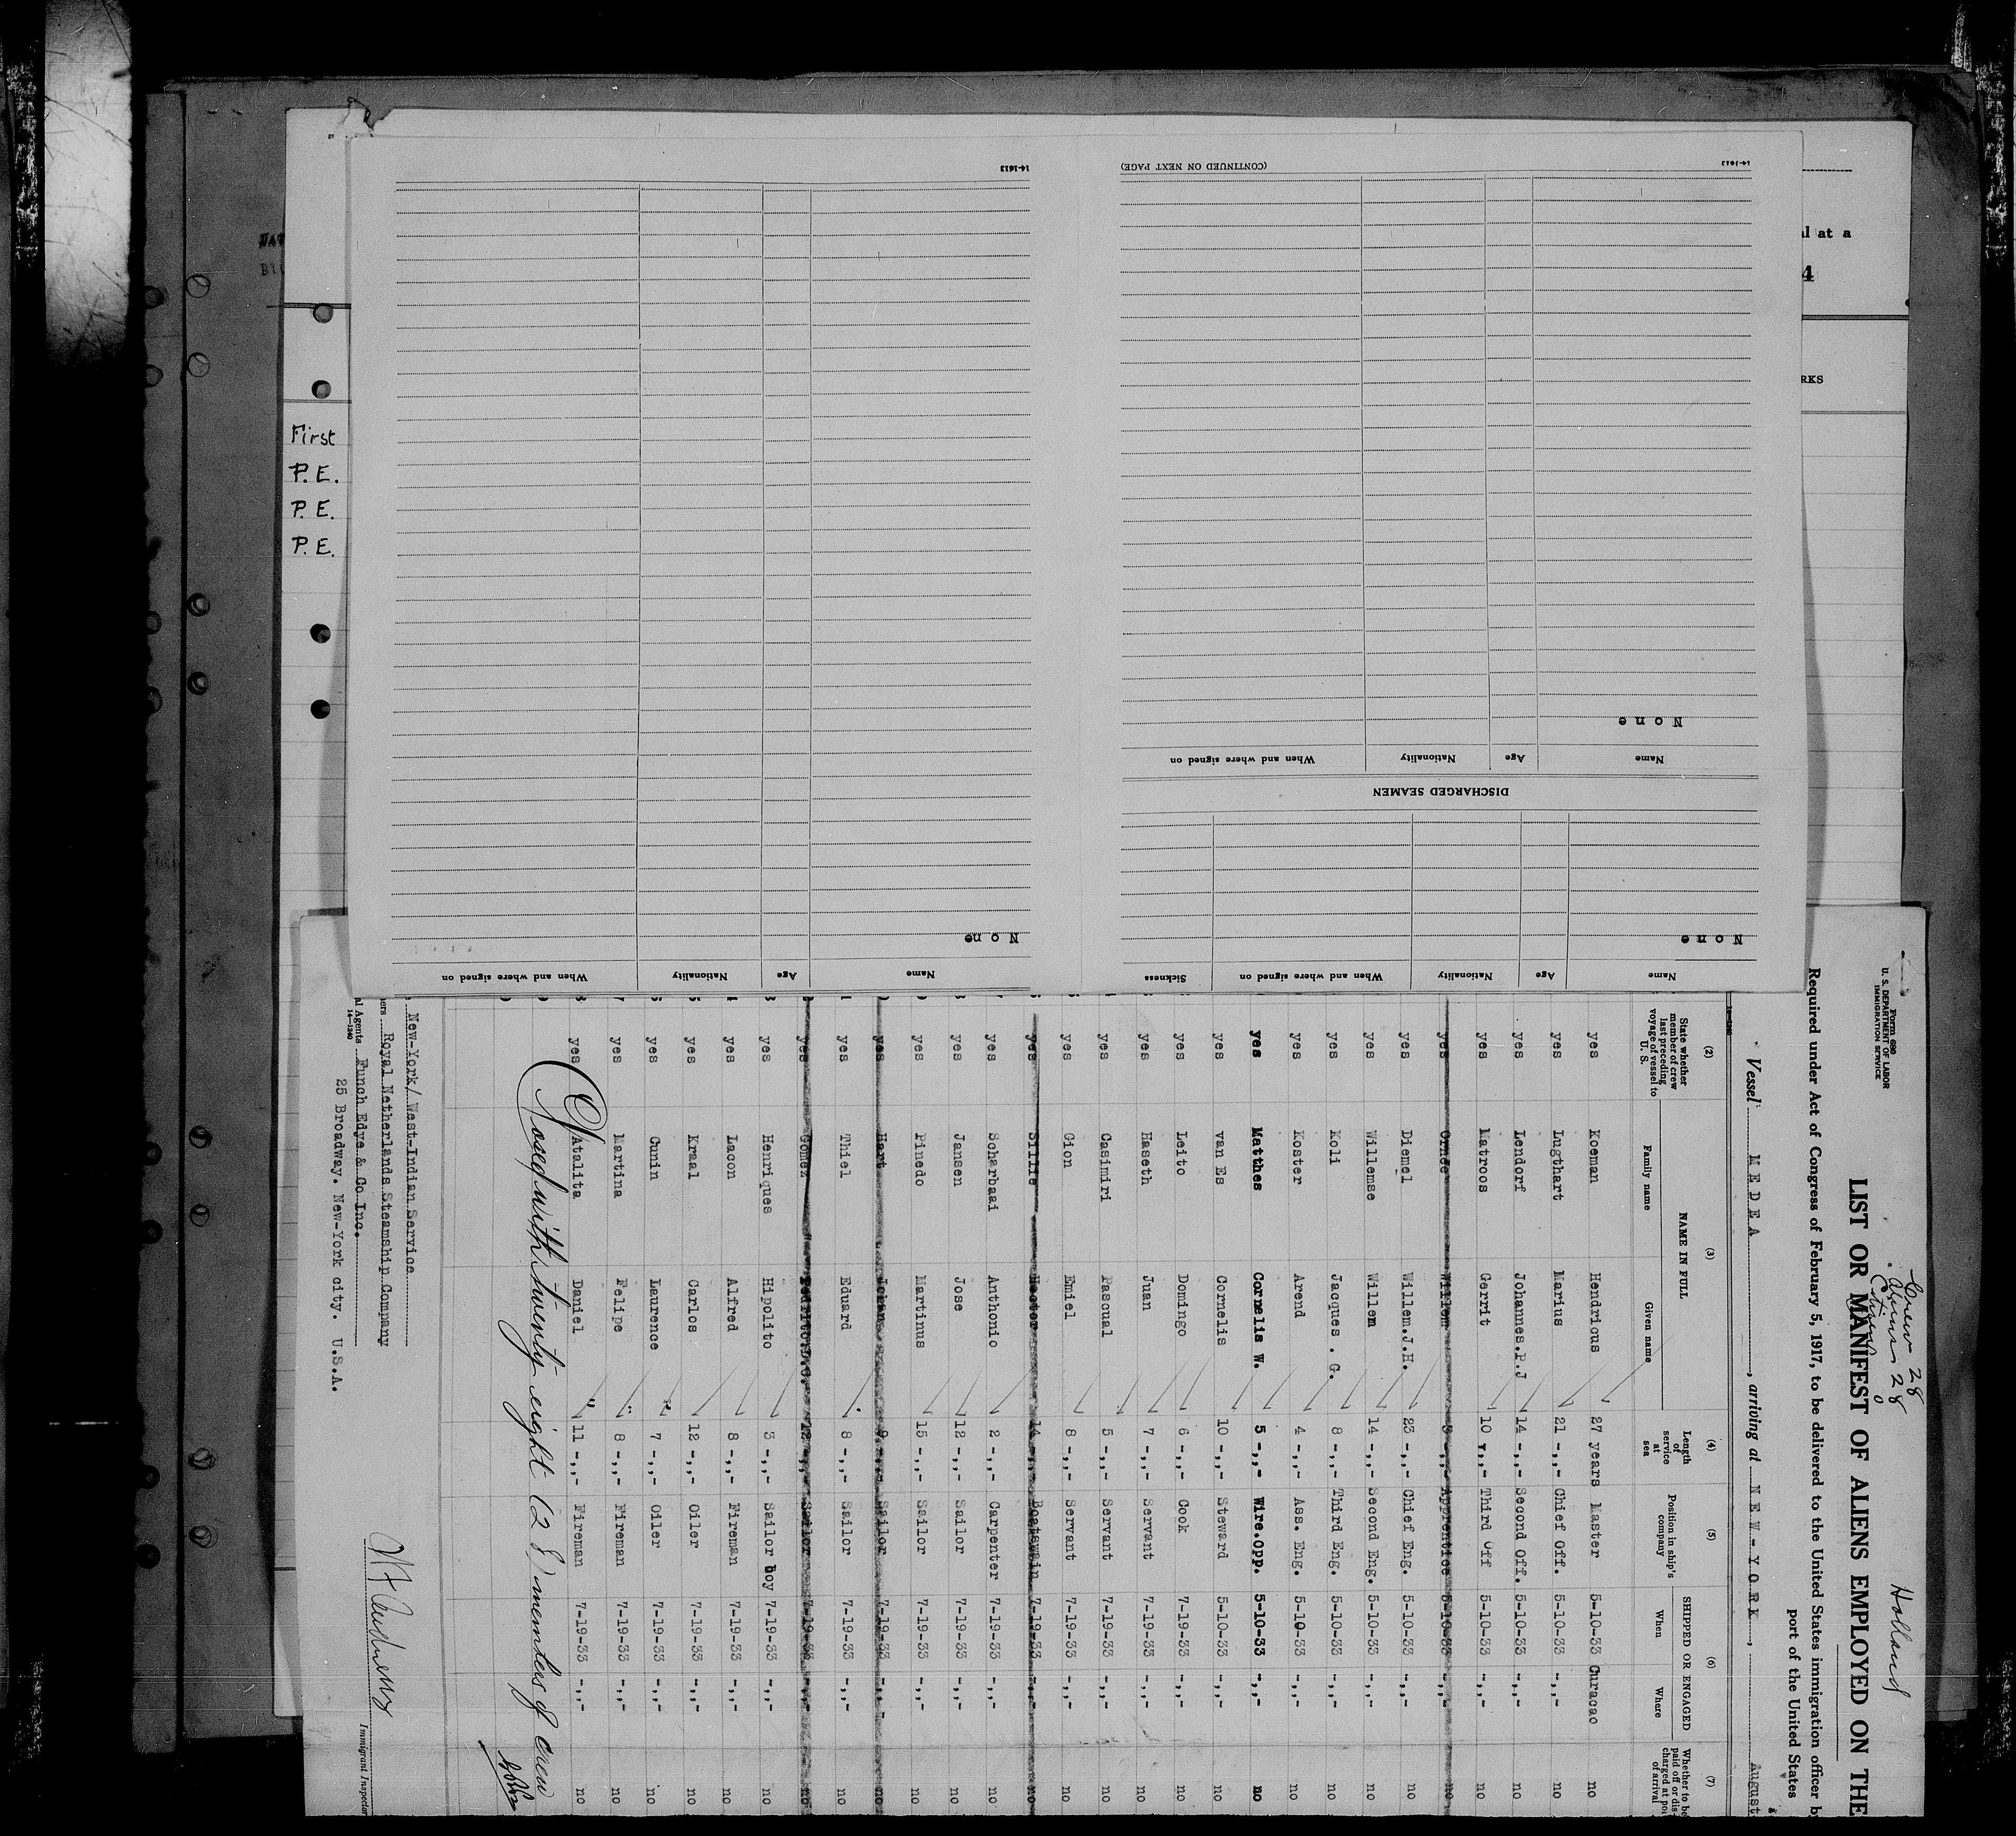 14-1613
(CONTINUED ON NEXT PAGE)
14-1613
l at a
4
RKS
First
P.E.
P.E.
P.E.
None
Name
Age
Nationality
When and where signed on
DISCHARGED SEAMEN
None
None
Name
Age
Nationality
When and where signed on
Sickness
Name
Age
Nationality
When and where signed on
Form 680
U. S. DEPARTMENT OF LABOR
IMMIGRATION SERVICE
Crew 28
Aliens 28
Citizens 0
Holland
LIST OR MANIFEST OF ALIENS EMPLOYED ON THE
Required under Act of Congress of February 5, 1917, to be delivered to the United States immigration officer b
port of the United States
Vessel MEDEA, arriving at NEW-YORK, August
(2) (3) (4) (5) (6) (7)
State whether member of crew last preceding voyage of vessel to U. S.
NAME IN FULL
Family name Given name
Length of service at sea
Position in ship's company
SHIPPED OR ENGAGED
When Where
Whether to be paid off or discharged at port of arrival
yes Koeman Hendricus 27 years Master 5-10-33 Curacao no
yes Lugthart Marius 21 -,,- Chief Off. 5-10-33 -,,- no
yes Lendorf Johannes.P.J 14 -,,- Second Off. 5-10-33 -,,- no
yes Matroos Gerrit 10 -,,- Third Off 5-10-33 -,,- no
yes Willem 3 -,,- Apprentice 5-10-33 -,,- no
yes Diemel Willem.J.H. 23 -,,- Chief Eng. 5-10-33 -,,- no
yes Willemse Willem 14 -,,- Second Eng. 5-10-33 -,,- no
yes Koli Jacques . G. 8 -,,- Third Eng. 5-10-33 -,,- no
yes Koster Arend 4 -,,- Ass. Eng. 5-10-33 -,,- no
yes Matthes Cornelis W. 5 -,,- Wire.Opp. 5-10-33 -,,- no
yes van Es Cornelis 10 -,,- Steward 5-10-33 -,,- no
yes Leito Domingo 6 -,,- Cook 7-19-33 -,,- no
yes Haseth Juan 7 -,,- Servant 7-19-33 -,,- no
yes Casimiri Pascual 5 -,,- Servant 7-19-33 -,,- no
yes Gion Emiel 8 -,,- Servant 7-19-33 -,,- no
yes Sillie Hector 14 -,,- Boatswain 7-19-33 -,,- no
yes Scharbaai Anthonio 2 -,,- Carpenter 7-19-33 -,,- no
yes Jansen Jose 12 -,,- Sailor 7-19-33 -,,- no
yes Pinedo Martinus 15 -,,- Sailor 7-19-33 -,,- no
yes Hart 9 -,,- Sailor 7-19-33 -,,- no
yes Thiel Eduard 8 -,,- Sailor 7-19-33 -,,- no
yes Gomez 12 -,,- Sailor 7-19-33 -,,- no
yes Henriques Hipolito 3 -,,- Sailor boy 7-19-33 -,,- no
yes Lacon Alfred 8 -,,- Fireman 7-19-33 -,,- no
yes Kraal Carlos 12 -,,- Oiler 7-19-33 -,,- no
yes Cunin Laurence 7 -,,- Oiler 7-19-33 -,,- no
yes Martina Felipe 8 -,,- Fireman 7-19-33 -,,- no
yes Natalita Daniel 11 -,,- Fireman 7-19-33 -,,- no
Closed with twenty eight (28) members of crew
New-York/West-Indian Service
ers Royal Netherlands Steamship Company
al Agents Funch Edye & Co Inc.
14-1240
25 Broadway. New-York city. U.S.A.
Immigrant Inspector